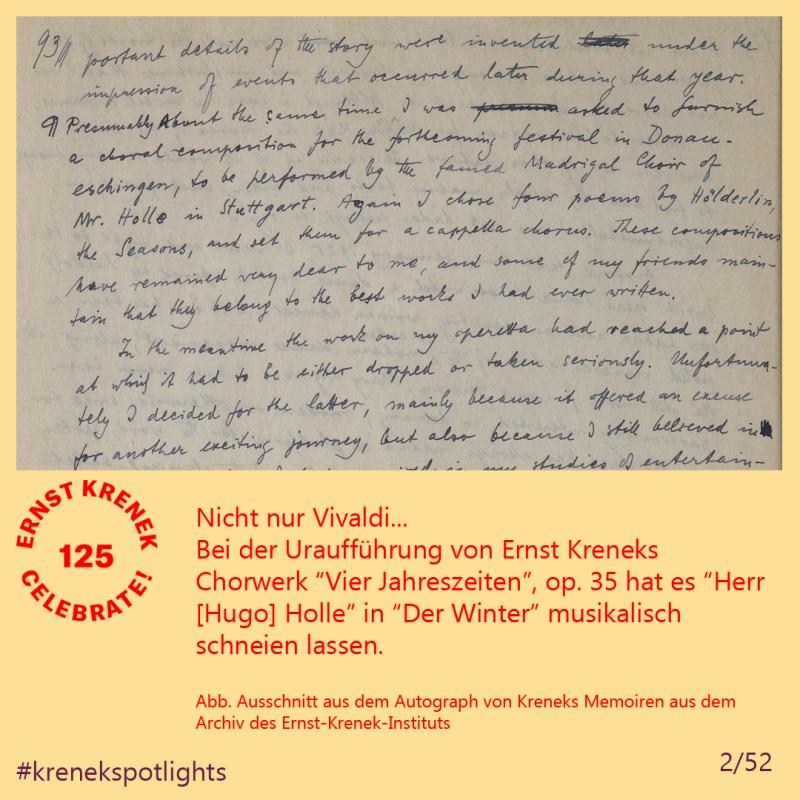 93//
portant details of the story were invented later under the
impression of events that occurred later during that year.
¶ Presumably About the same time I was asked to furnish
a choral composition for the forthcoming festival in Donau-
eschingen, to be performed by the famed Madrigal Choir of
Mr. Holle in Stuttgart. Again I chose four poems by Hölderlin,
the Seasons, and set them for a cappella chorus. These compositions
have remained very dear to me, and some of my friends main-
tain that they belong to the best works I had ever written.
In the meantime the work on my operetta had reached a point
at which it had to be either dropped or taken seriously. Unfortuna-
tely I decided for the latter, mainly because it offered an excuse
for another exciting journey, but also because I still believed in
my studies of entertain-
ERNST KRENEK
125
CELEBRATE!
Nicht nur Vivaldi...
Bei der Uraufführung von Ernst Kreneks
Chorwerk “Vier Jahreszeiten”, op. 35 hat es “Herr
[Hugo] Holle” in “Der Winter” musikalisch
schneien lassen.
Abb. Ausschnitt aus dem Autograph von Kreneks Memoiren aus dem
Archiv des Ernst-Krenek-Instituts
#krenekspotlights
2/52